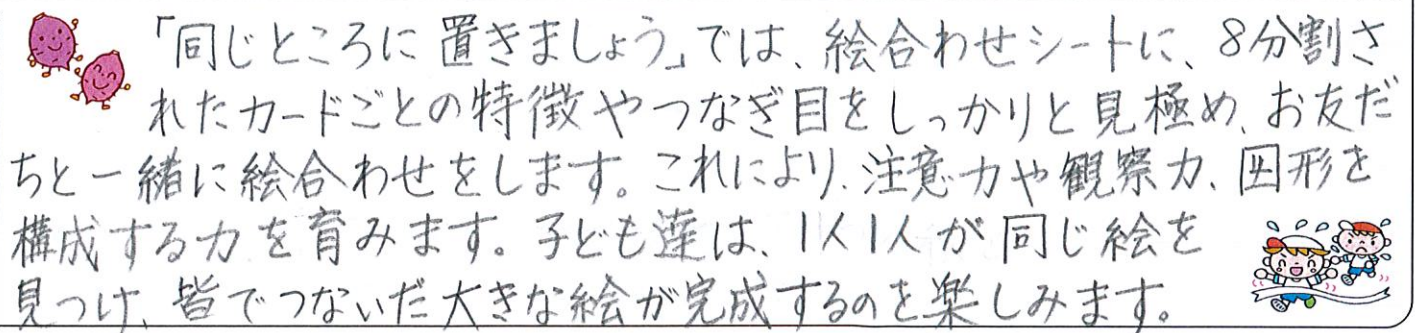 「同じところに置きましょう」では、絵合わせシートに、8分割さ
れたカードごとの特徴やつなぎ目をしっかりと見極め、お友だ
ちと一緒に絵合わせをします。これにより、注意力や観察力、図形を
構成する力を育みます。子ども達は、1人1人が同じ絵を
見つけ、皆でつないだ大きな絵が完成するのを楽しみます。